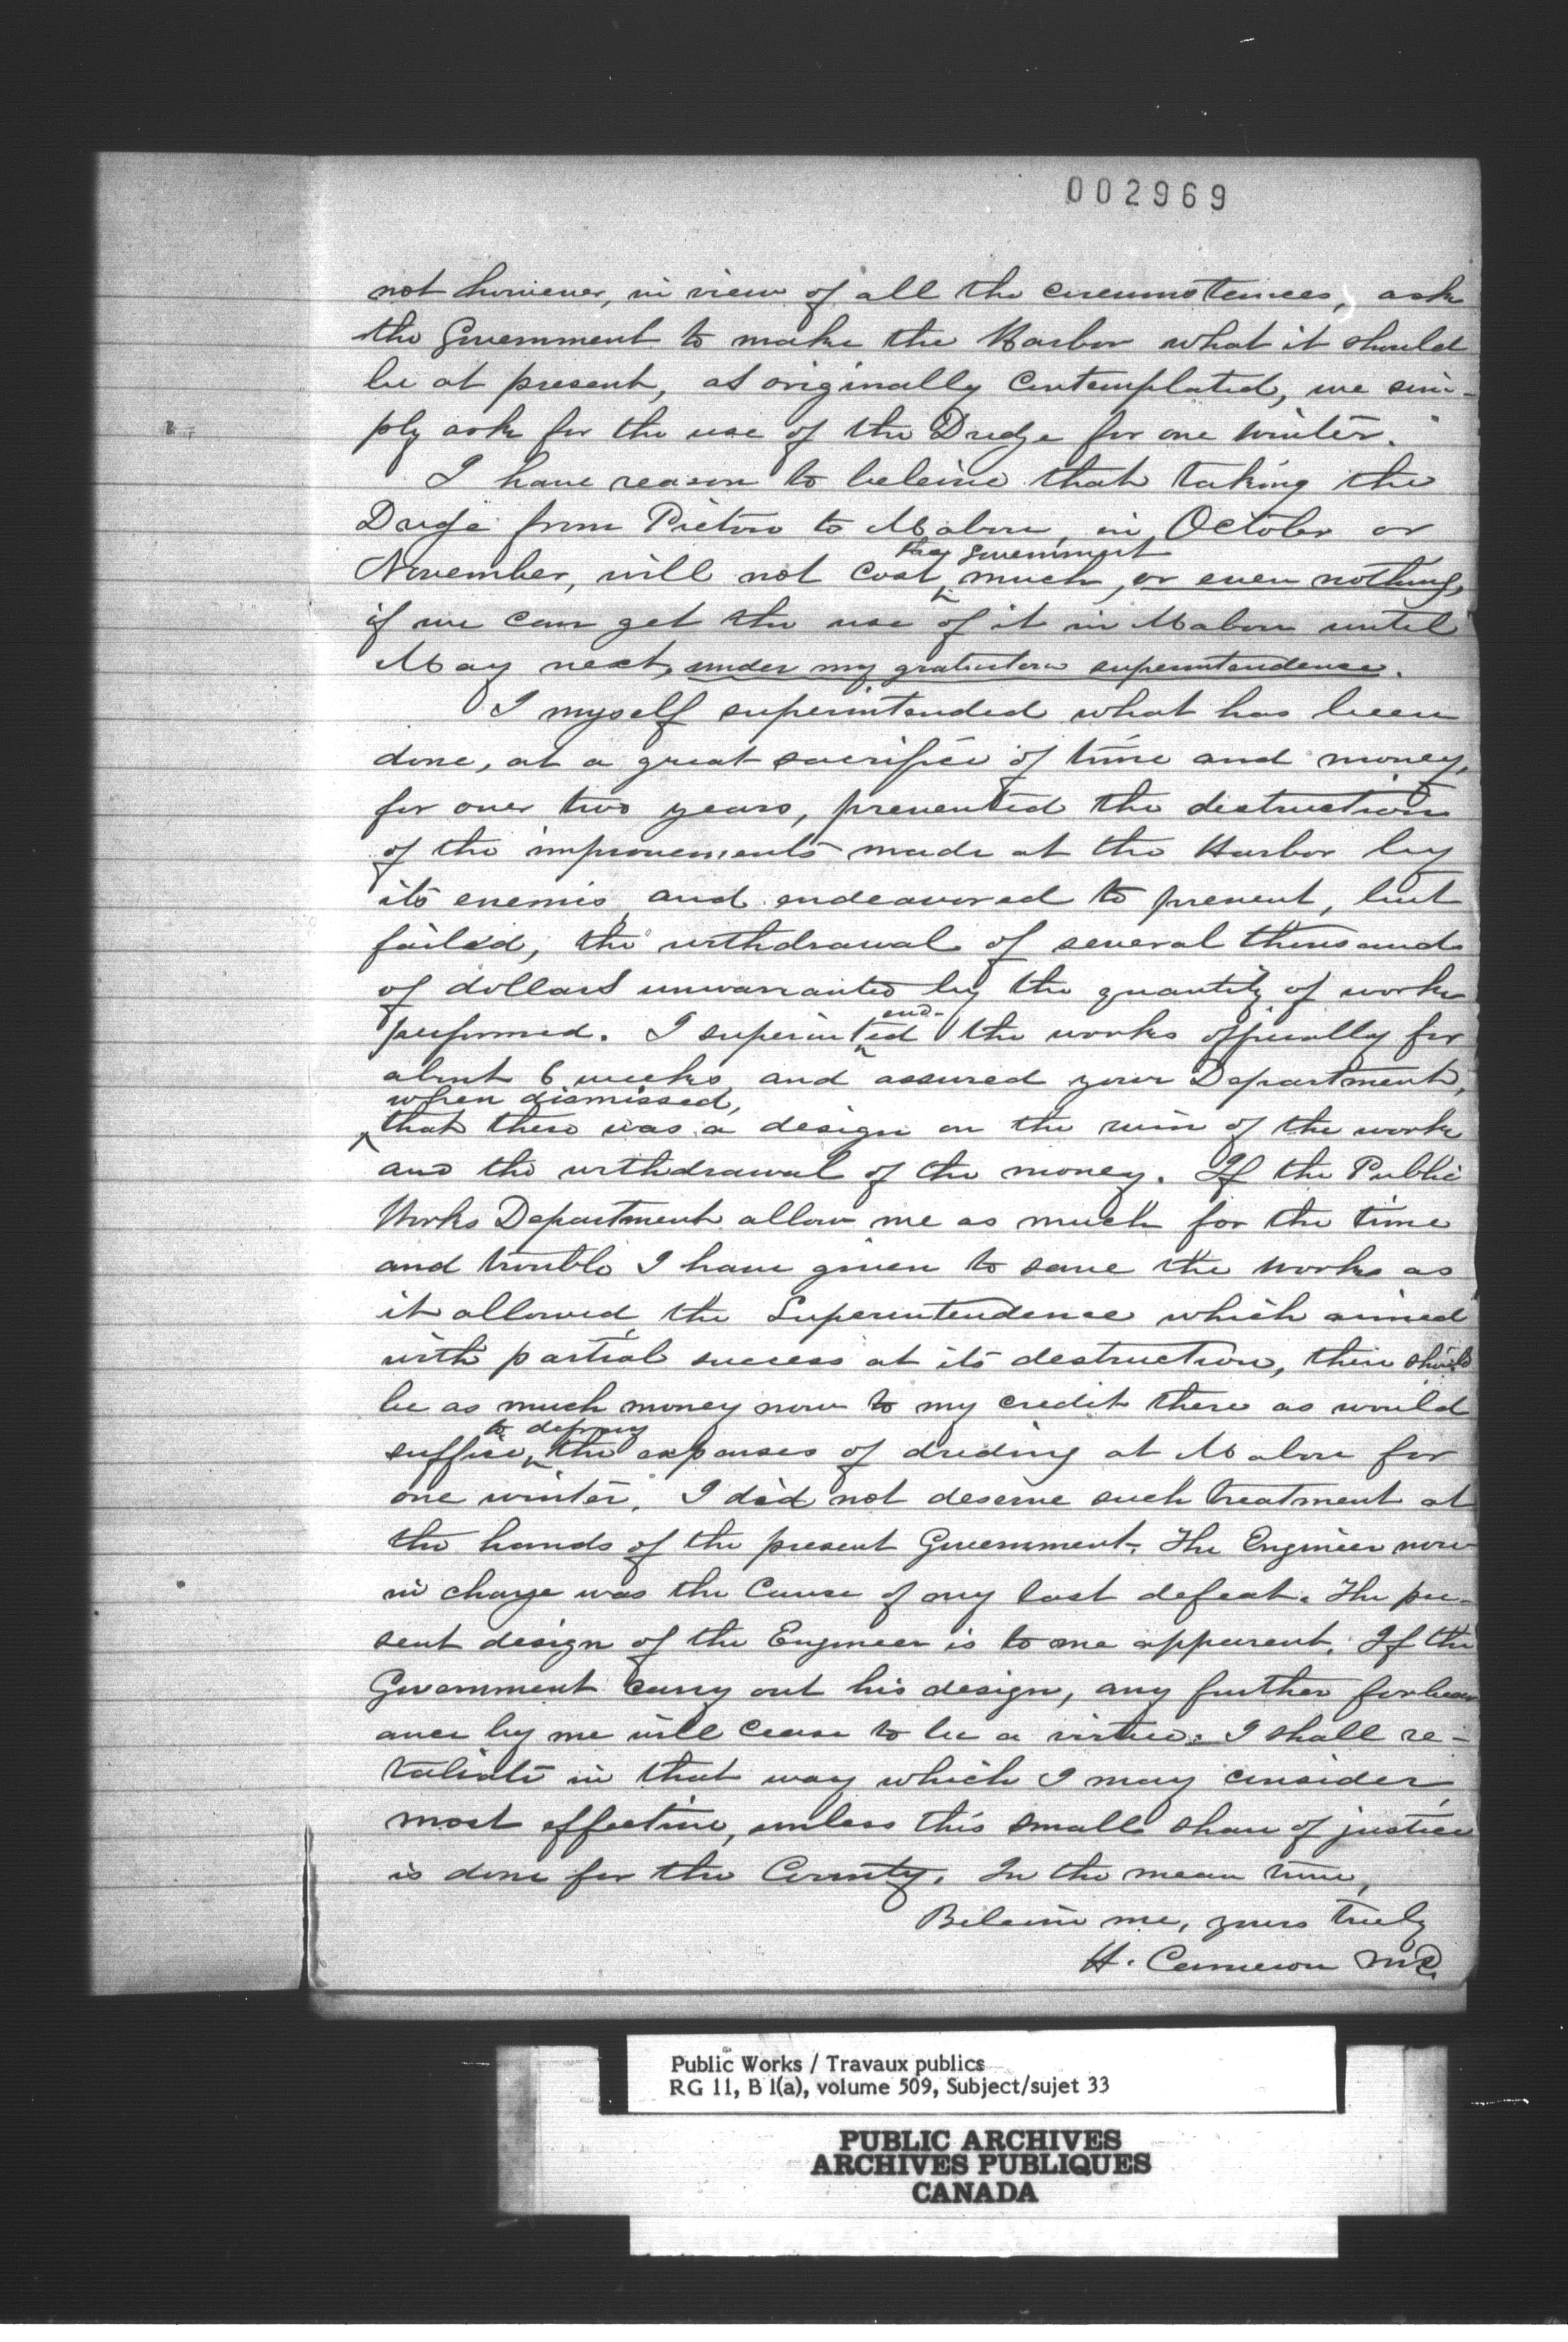 002969
not however, in view of all the circumstances, ask
the Government to make the Harbor what it should
be at present, as originally contemplated, we sim-
ply ask for the use of the Dredge for one winter.
I have reason to beleive that taking the
Dredge from Pictou to Mabou, in October or
the government
November, will not cost much, or even nothing,
if we can get the use of it in Mabou until
May next, under my gratuitous superintendence.
I myself superintended what has been
done, at a great sacrifice of time and money,
for over two years, prevented the distruction
of the improvements made at the Harbor by
its enemies, and endeavored to prevent, but
failed, the withdrawal of several thousands
of dollars unwarranted by the quantity of works
end-
performed. I superinted the works officially for
about 6 weeks, and assured your Department,
when dismissed,
that there was a design on the ruin of the works
and the withdrawal of the money. If the Public
Works Department allow me as much for the time
and trouble I have given to save the works as
it allowed, the Superintendence which aimed
with partial success at its destruction, there should
be as much money now to my credit there as would
to defray
suffice the expenses of dredging at Mabou for
one winter. I did not deserve such treatment at
the hands of the present Government. The Engineer now
in charge was the Cause of my last defeat. The pre-
sent design of the Engineer is to me apparent. If the
Government carry out his design, any further forbear
ance by me will cease to be a virtue. I shall re-
taliate in that way which I may consider
most effective, unless this small share of justice
is done for the County. In the mean time,
Beleive me, yours truly
H. Cameron M.P.
Public Works / Travaux publics
RG 11, B 1(a), volume 509, Subject/sujet 33
PUBLIC ARCHIVES
ARCHIVES PUBLIQUES
CANADA